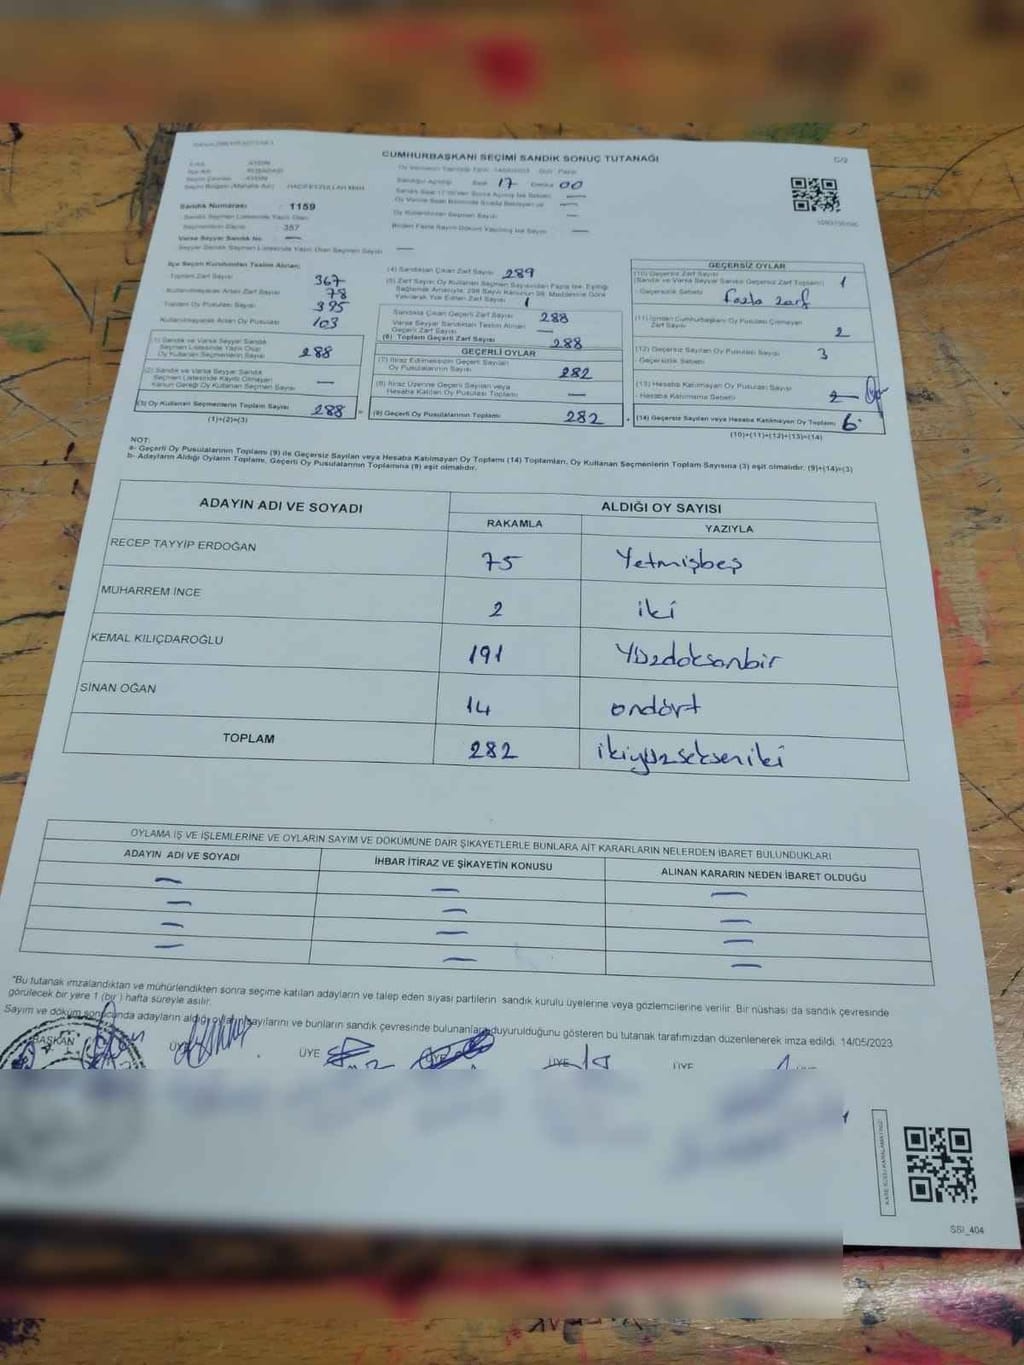 CUMHURBAŞKANI SEÇİMİ SANDIK SONUÇ TUTANAĞI
Saat 17 Dakika 00
Sandık Numarası 1159
Sandık Seçmen Listesinde Yazılı Olan
Seçmenlerin Sayısı 357
Varsa Seyyar Sandık No. —
Seyyar Sandık Seçmen Listesinde Yazılı Olan Seçmen Sayısı —
İlçe Seçim Kurulundan Teslim Alınan;
Toplam Zarf Sayısı 367
Kullanılmayarak Artan Zarf Sayısı 78
Toplam Oy Pusulası Sayısı 395
Kullanılmayarak Artan Oy Pusulası 103
(1) Sandık ve Varsa Seyyar Sandık
Seçmen Listesinde Yazılı Olup
Oy Kullanan Seçmenlerin Sayısı 288
(2) Sandık ve Varsa Seyyar Sandık
Seçmen Listesinde Kayıtlı Olmayan
Kanun Gereği Oy Kullanan Seçmen Sayısı —
(3) Oy Kullanan Seçmenlerin Toplam Sayısı 288
(1)+(2)=(3)
(4) Sandıktan Çıkan Zarf Sayısı 289
1
Sandıkta Çıkan Geçerli Zarf Sayısı 288
Varsa Seyyar Sandıktan Teslim Alınan
Geçerli Zarf Sayısı —
(6) Toplam Geçerli Zarf Sayısı 288
GEÇERLİ OYLAR
(7) İtiraz Edilmeksizin Geçerli Sayılan
Oy Pusulalarının Sayısı 282
(8) İtiraz Üzerine Geçerli Sayılan veya
Hesaba Katılan Oy Pusulaları Toplamı —
(9) Geçerli Oy Pusulalarının Toplamı 282
GEÇERSİZ OYLAR
(10) Geçersiz Zarf Sayısı
(Sandık ve Varsa Seyyar Sandık Geçersiz Zarf Toplamı) 1
Geçersizlik Sebebi fazla zarf
(11) İçinden Cumhurbaşkanı Oy Pusulası Çıkmayan
Zarf Sayısı 2
(12) Geçersiz Sayılan Oy Pusulası Sayısı 3
Geçersizlik Sebebi
(13) Hesaba Katılmayan Oy Pusulası Sayısı
Hesaba Katılmama Sebebi
(14) Geçersiz Sayılan veya Hesaba Katılmayan Oy Toplamı 6
(10)+(11)+(12)+(13)=(14)
NOT:
a- Geçerli Oy Pusulalarının Toplamı (9) ile Geçersiz Sayılan veya Hesaba Katılmayan Oy Toplamı (14) Toplamları, Oy Kullanan Seçmenlerin Toplam Sayısına (3) eşit olmalıdır. (9)+(14)=(3)
b- Adayların Aldığı Oyların Toplamı, Geçerli Oy Pusulalarının Toplamına (9) eşit olmalıdır.
ADAYIN ADI VE SOYADI ALDIĞI OY SAYISI
RAKAMLA YAZIYLA
RECEP TAYYİP ERDOĞAN 75 Yetmişbeş
MUHARREM İNCE 2 iki
KEMAL KILIÇDAROĞLU 191 Yüzdoksanbir
SİNAN OĞAN 14 ondört
TOPLAM 282 ikiyüzsekseniki
OYLAMA İŞ VE İŞLEMLERİNE VE OYLARIN SAYIM VE DÖKÜMÜNE DAİR ŞİKAYETLERLE BUNLARA AİT KARARLARIN NELERDEN İBARET BULUNDUKLARI
ADAYIN ADI VE SOYADI İHBAR İTİRAZ VE ŞİKAYETİN KONUSU ALINAN KARARIN NEDEN İBARET OLDUĞU
— — —
— — —
— — —
— — —
*Bu tutanak imzalandıktan ve mühürlendikten sonra seçime katılan adayların ve talep eden siyasi partilerin sandık kurulu üyelerine veya gözlemcilerine verilir. Bir nüshası da sandık çevresinde
görülecek bir yere 1 (bir) hafta süreyle asılır.
Sayım ve döküm sonucunda adayların aldığı oyların sayılarını ve bunların sandık çevresinde bulunanlara duyurulduğunu gösteren bu tutanak tarafımızdan düzenlenerek imza edildi. 14/05/2023
BAŞKAN ÜYE ÜYE ÜYE ÜYE ÜYE
SSİ_404